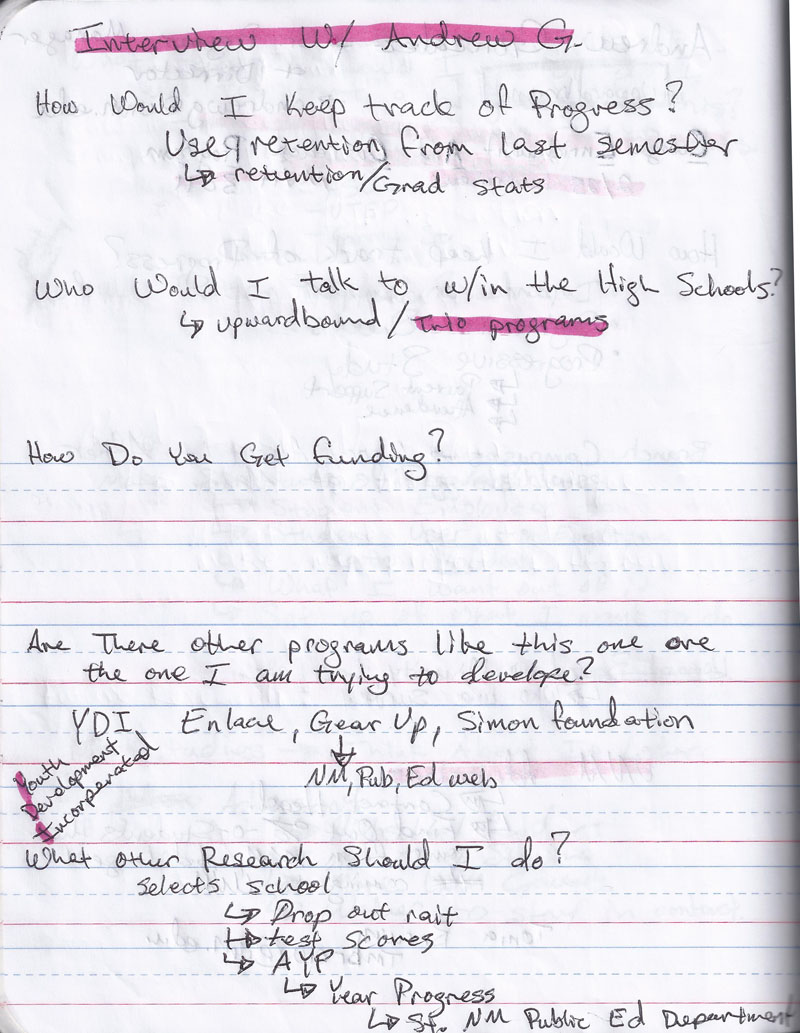 Interview W/ Andrew G.
How Would I Keep track of Progress?
Use retention from last semester
↳ retention/Grad stats
Who Would I talk to w/in the High Schools?
↳ upwardbound/ programs
How Do You Get funding?
Are There other programs like this one ore
the one I am trying to develope?
YDI, Enlace, Gear Up, Simon foundation
Youth
Development
Incorperated
↓
NM, Pub, Ed web
What other Research Should I do?
Selects school
↳ Drop out rait
↳ test scores
↳ AYP
↳ Year Progress
↳ St. NM Public Ed Department